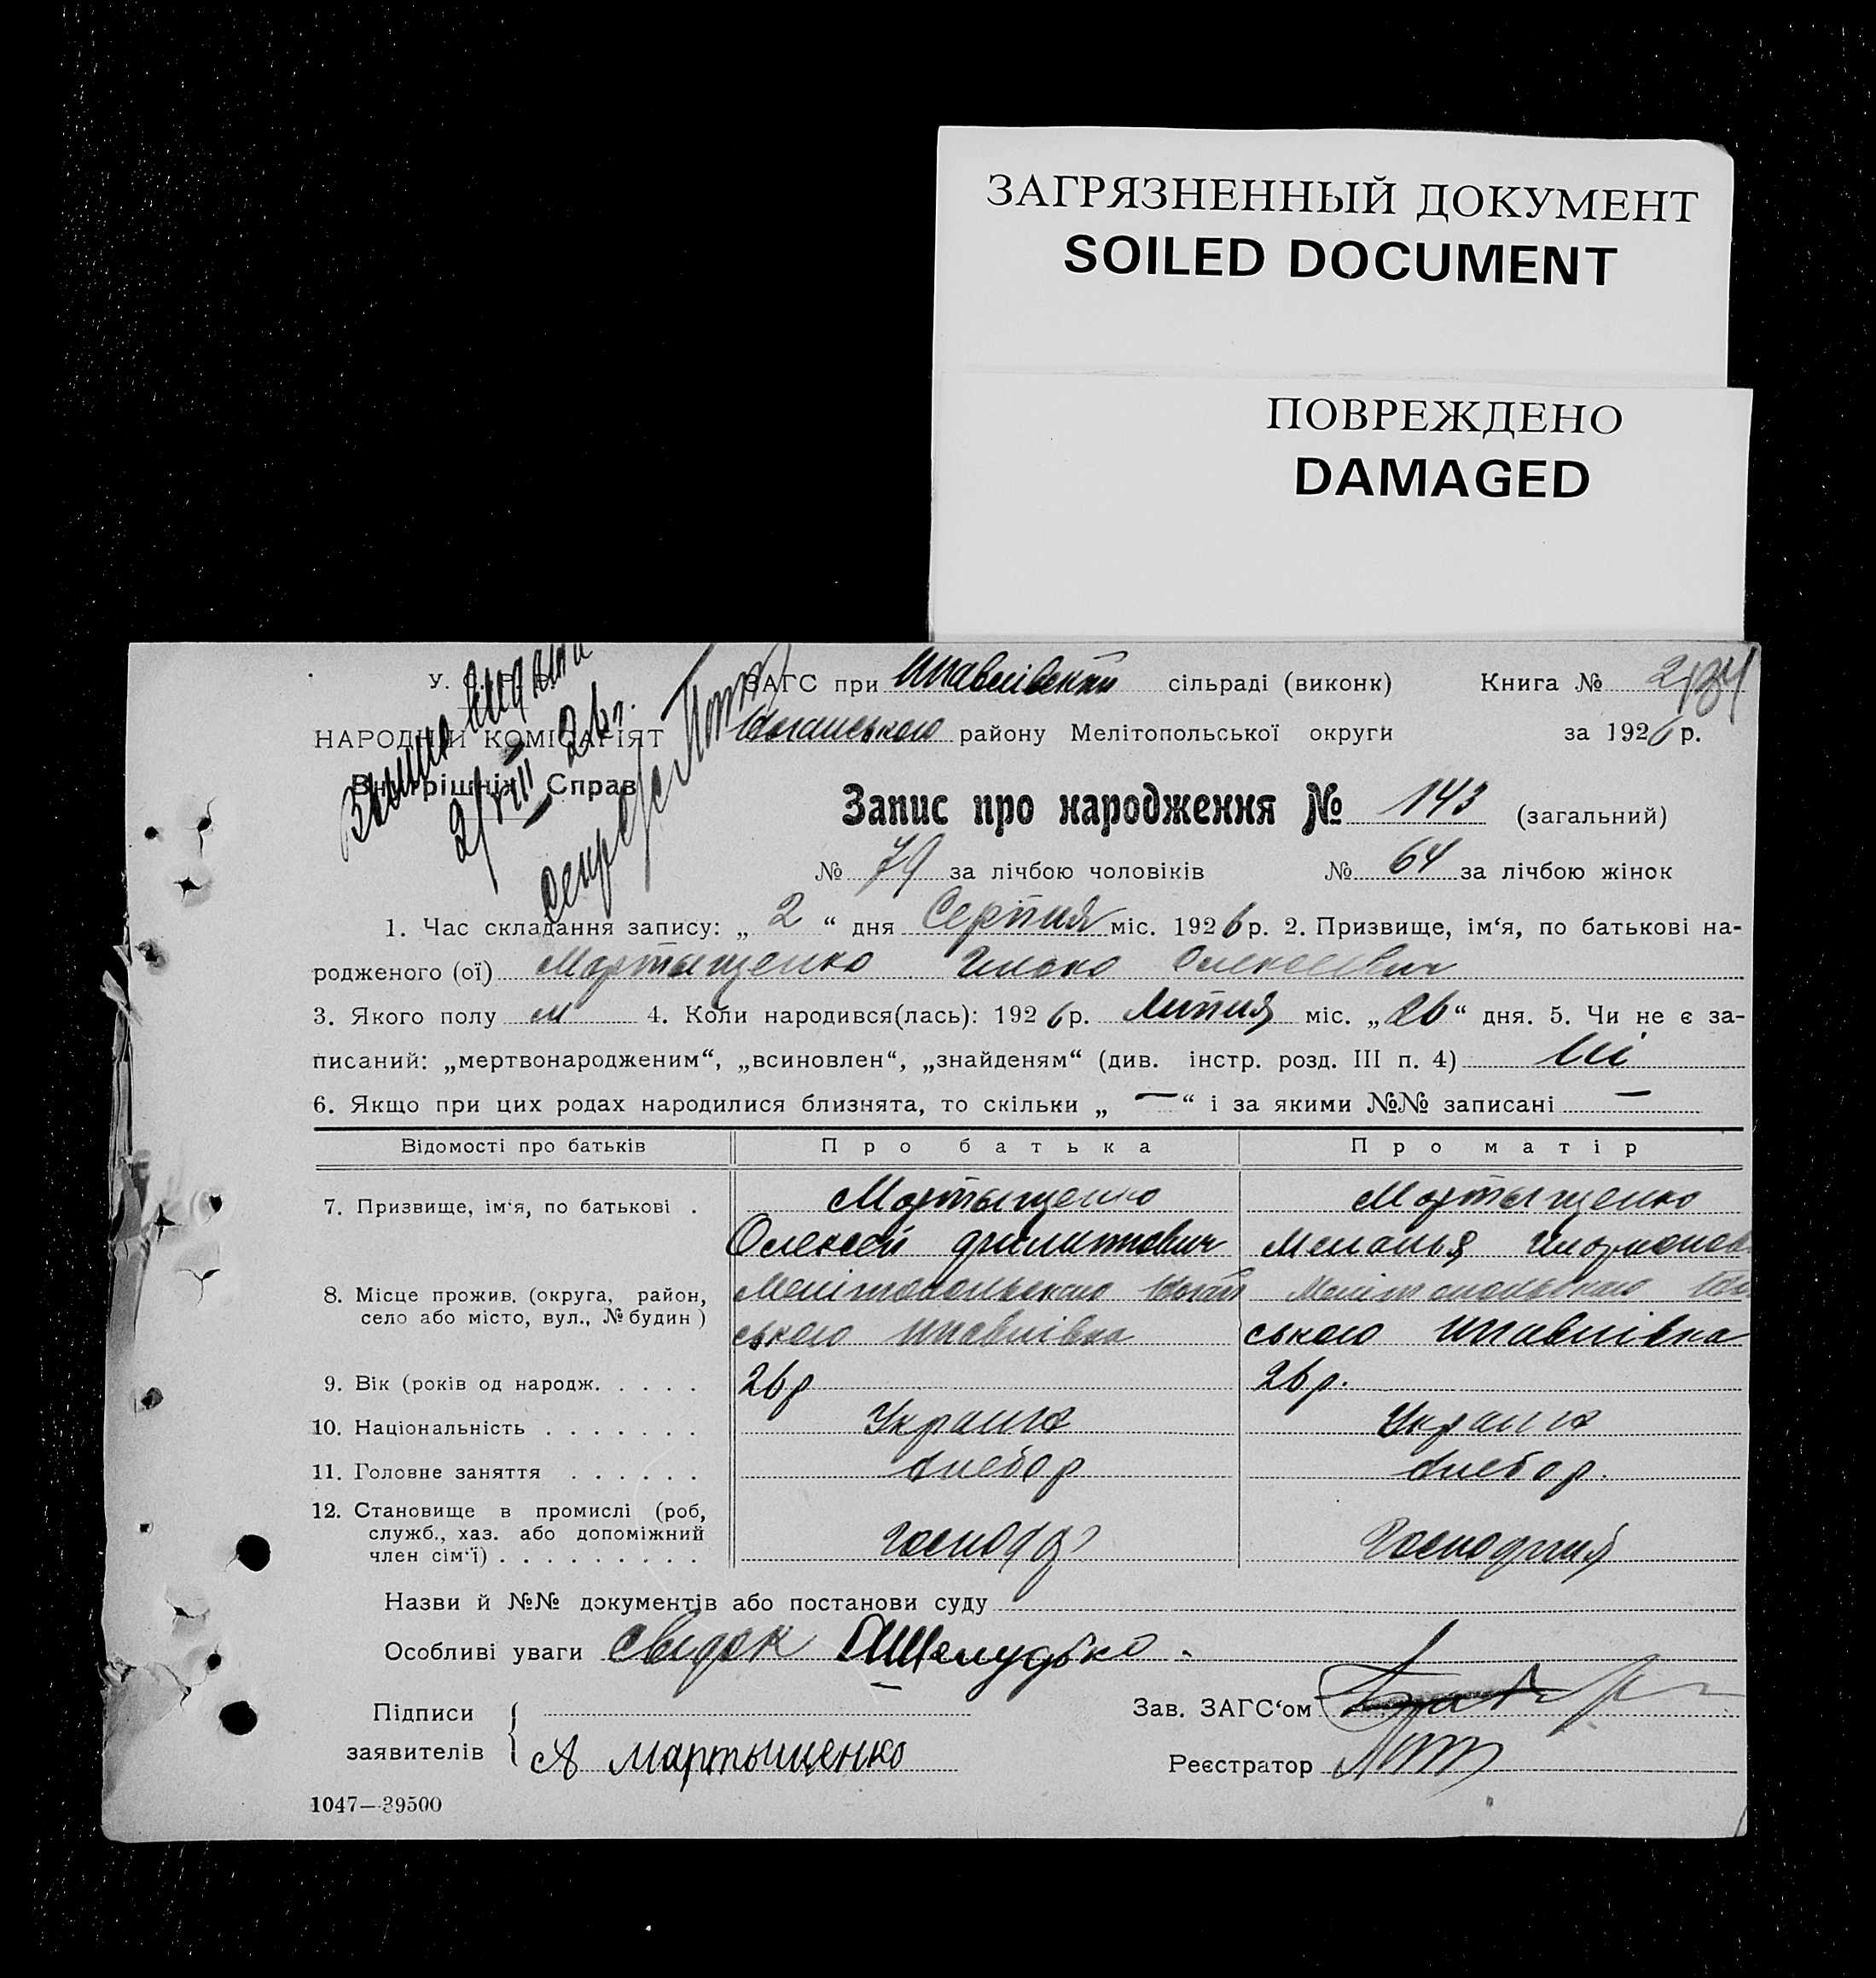 ЗАГРЯЗНЕННЫЙ ДОКУМЕНТ
SOILED DOCUMENT
ПОВРЕЖДЕНО
DAMAGED
У.
ЗАГС при сільраді (виконк) Книга №
НАРОДНІЙ КОМІСАРІЯТ
району Мелітопольської округи за 1926 р.
Внутрішніх Справ
2/VIII 26 г.
Запис про народження № 143 (загальний)
№ 79 за лічбою чоловіків № 64 за лічбою жінок
1. Час складання запису: „ 2 “ дня Серпня міс. 1926 р. 2. Призвище, ім‘я, по батькові на-
родженого (ої) Мартыщенко Олексеевич
3. Якого полу м 4. Коли народився(лась): 1926 р. Липня міс. „26“ дня. 5. Чи не є за-
писаний: „мертвонародженим“, „всиновлен“, „знайденям“ (див. інстр. розд. III п. 4) Ні
6. Якщо при цих родах народилися близнята, то скільки „ — “ і за якими №№ записані —
Відомості про батьків Про батька Про матір
7. Призвище, ім‘я, по батькові . Мартыщенко Мартыщенко
Олексей Меланья
8. Місце прожив. (округа, район,
село або місто, вул., № будин )
9. Вік (років од народж. . . . . 26 р 26 р.
10. Національність . . . . . . . Украина Украина
11. Головне заняття . . . . . . хлебор хлебор.
12. Становище в промислі (роб,
служб., хаз. або допоміжний
член сім‘ї) . . . . . . . . . господ
Назви й №№ документів або постанови суду
Особливі уваги свидок Шелудько
Підписи Зав. ЗАГС‘ом
заявителів А Мартыщенко Реєстратор
1047—39500